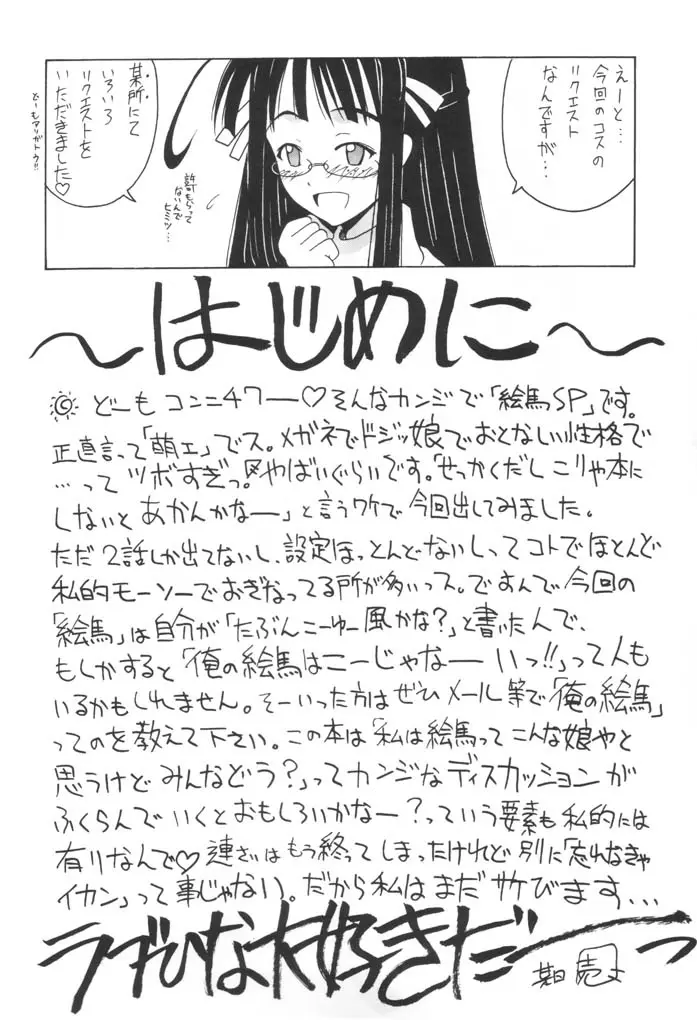 えーと…
今回のコスの
リクエスト
なんですが…
某所にて
いろいろ
リクエストを
いただきました♡
どーもアリガトウ!!
許可もらって
ないんで
ヒミツ…
〜はじめに〜
どーもコンニチワー♡そんなカンジで「絵馬SP」です。
正直言って「萌エ」でス。メガネでドジッ娘でおとなしい性格で
…ってツボすぎっ。やばいぐらいです。「せっかくだしこりゃ本に
しないとあかんかなー」と言うワケで今回出してみました。
ただ2話しか出てないし、設定ほっとんどないしってコトでほとんど
私的モーソーでおぎなってる所が多いっス。ですんで今回の
「絵馬」は自分が「たぶんこーゆー風かな?」と書いたんで、
もしかすると「俺の絵馬はこーじゃなーいっ!!」って人も
いるかもしれません。そーいった方はぜひメール等で「俺の絵馬」
ってのを教えて下さい。この本は「私は絵馬ってこんな娘やと
思うけどみんなどう?」ってカンジなディスカッションが
ふくらんでいくとおもしろいかなー?っていう要素も私的には
有りなんで♡連さいはもう終ってしまったけれど別に「忘れなきゃ
イカン」って事じゃない。だから私はまだサケびます...
ラブひな大好きだーーっ